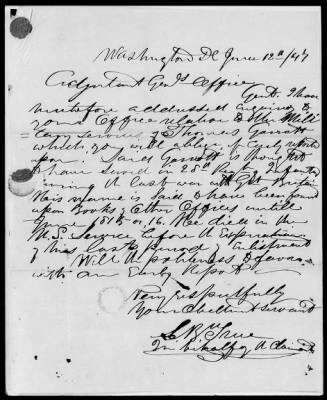 Washington DC June 12th/47
Adjutant Genl's Office
Genl. I have
heretofore addressed enquiries to
your Office relation to the Mili
tary services of Thomas Garrett
which you will oblige if early
upon. Said Garrett is thought
to have served in 25th Regt Infantry
during the last war with Gt Britain
His name is said to have been found
upon Books of other Offices until
June 1815 or 16. He died in the
U.S. Service before the Expiration
of his last period of Enlistment
Will you please favor
with an Early Report
Very Respectfully
Your Obedient Servant
True
In behalf of the Claimant